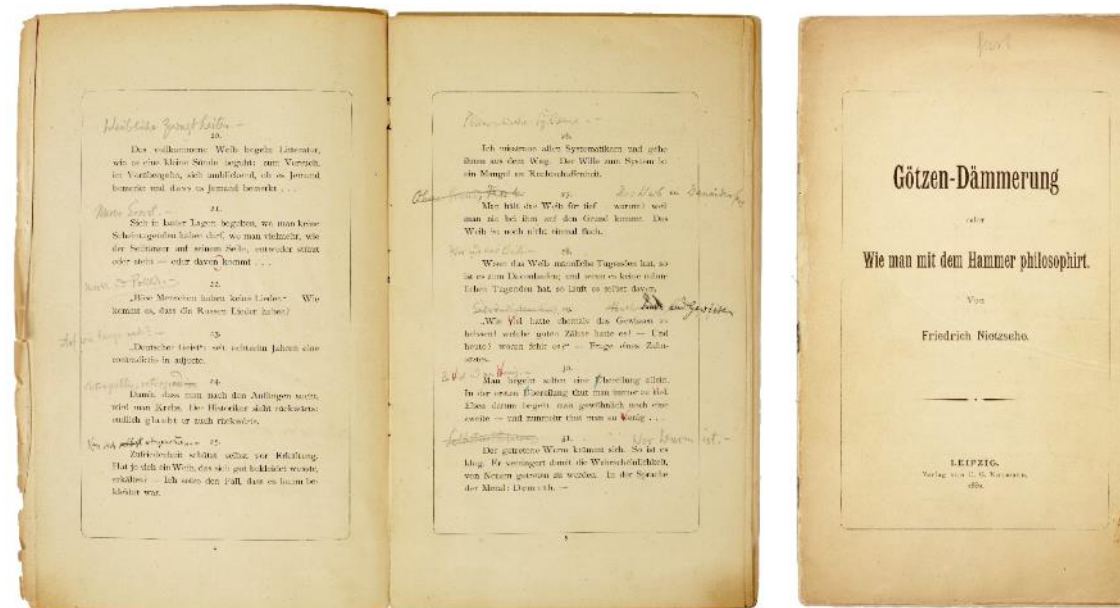 Weibliche
20.
Das vollkommene Weib begeht Litteratur,
wie es eine kleine Sünde begeht: zum Versuch,
im Vorübergehn, sich umblickend, ob es Jemand
bemerkt und dass es Jemand bemerkt . . .
21.
Sich in lauter Lagen begeben, wo man keine
Scheintugenden haben darf, wo man vielmehr, wie
der Seiltänzer auf seinem Seile, entweder stürzt
oder steht — oder davon kommt . . .
22.
„Böse Menschen haben keine Lieder.“ — Wie
kommt es, dass die Russen Lieder haben?
23.
„Deutscher Geist“: seit achtzehn Jahren eine
contradictio in adjecto.
24.
Damit, dass man nach den Anfängen sucht,
wird man Krebs. Der Historiker sieht rückwärts;
endlich glaubt er auch rückwärts.
25.
Zufriedenheit schützt selbst vor Erkältung.
Hat je sich ein Weib, das sich gut bekleidet wusste,
erkältet? — Ich setze den Fall, dass es kaum be-
kleidet war.
4
26.
Ich misstraue allen Systematikern und gehe
ihnen aus dem Weg. Der Wille zum System ist
ein Mangel an Rechtschaffenheit.
27.
Man hält das Weib für tief — warum? weil
man nie bei ihm auf den Grund kommt. Das
Weib ist noch nicht einmal flach.
28.
Wenn das Weib männliche Tugenden hat, so
ist es zum Davonlaufen; und wenn es keine männ-
lichen Tugenden hat, so läuft es selbst davon.
und Gewissen
29.
„Wie viel hatte ehemals das Gewissen zu
beissen? welche guten Zähne hatte es? — Und
heute? woran fehlt es?“ — Frage eines Zahn-
arztes.
30.
Man begeht selten eine Übereilung allein.
In der ersten Übereilung thut man immer zu viel.
Eben darum begeht man gewöhnlich noch eine
zweite — und nunmehr thut man zu wenig . . .
31.
Der getretene Wurm krümmt sich. So ist es
klug. Er verringert damit die Wahrscheinlichkeit,
von Neuem getreten zu werden. In der Sprache
der Moral: Demuth. —
5
Götzen-Dämmerung
oder
Wie man mit dem Hammer philosophirt.
Von
Friedrich Nietzsche.
LEIPZIG.
Verlag von C. G. Naumann.
1889.